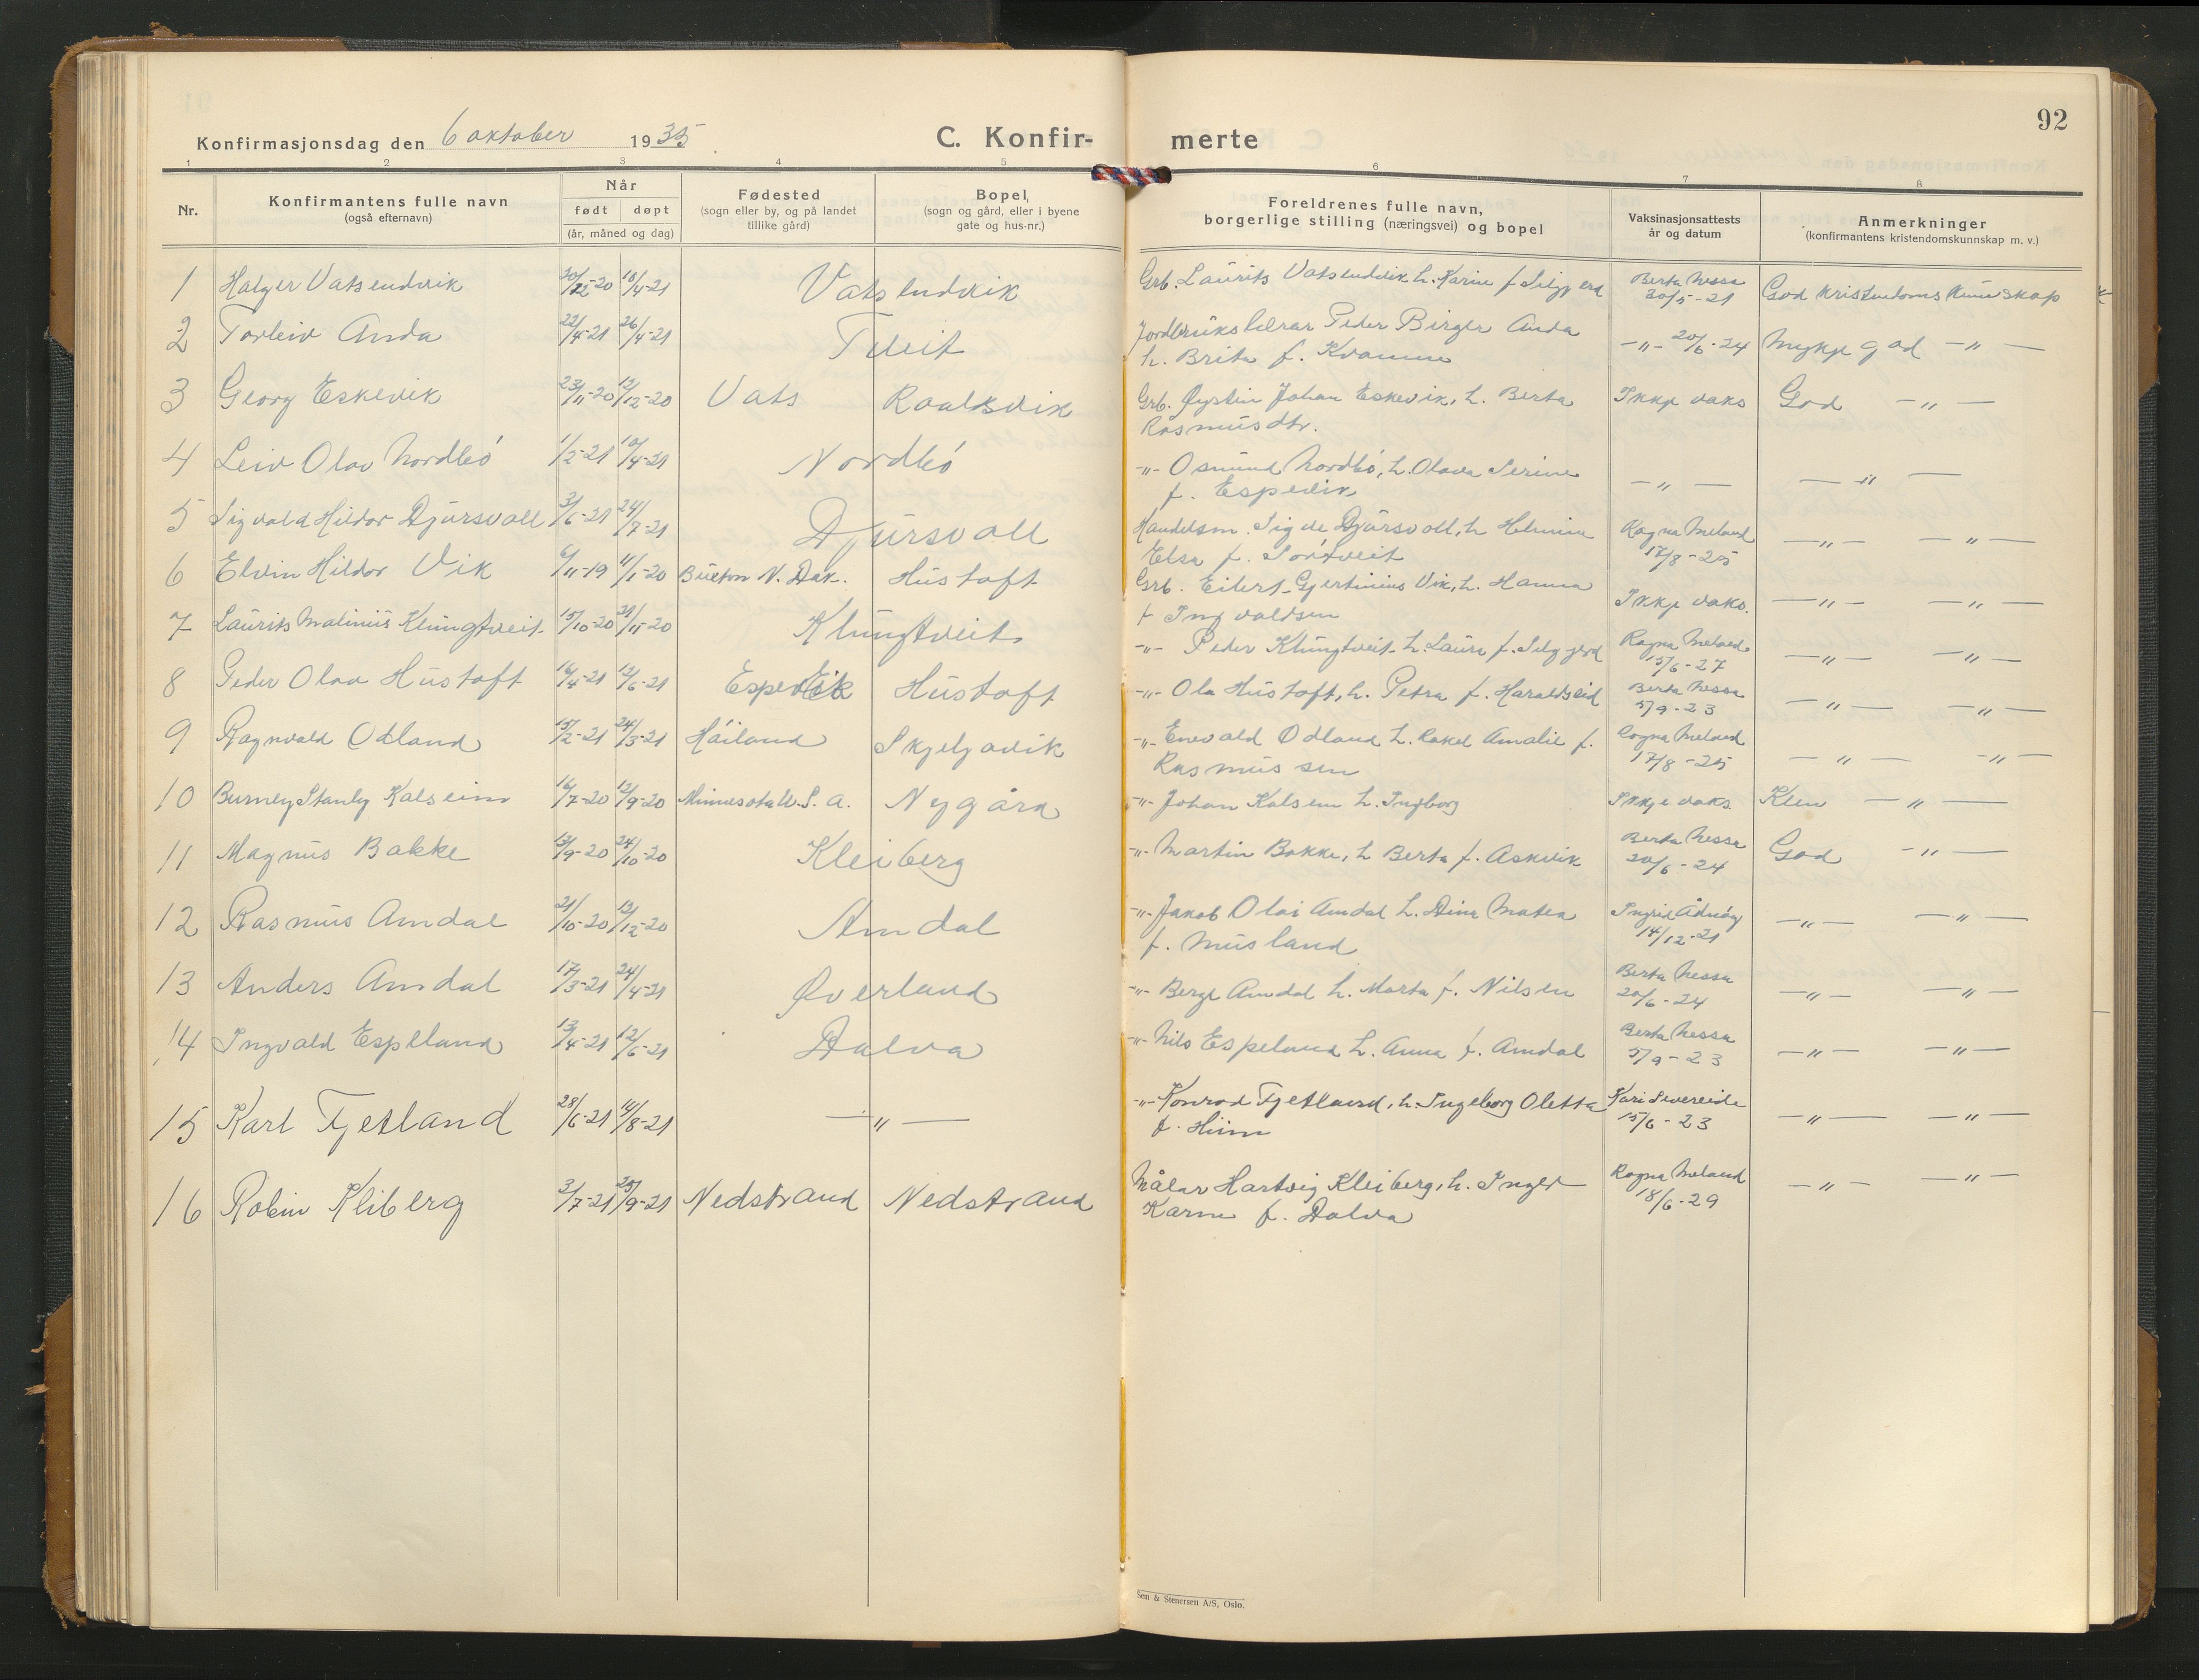 92
Konfirmasjonsdag den 6 oktober 1935 C. Konfir- merte
1 2 3 4 5 6 7 8
Nr. Konfirmantens fulle navn (også efternavn) Når født døpt (år, måned og dag) Fødested (sogn eller by, og på landet tillike gård) Bopel, (sogn og gård, eller i byene gate og hus-nr.) Foreldrenes fulle navn, borgerlige stilling (næringsvei) og bopel Vaksinasjonsattests år og datum Anmerkninger (konfirmantens kristendomskunnskap m. v.)
1 Halger Vatsendvik 30/12-20 18/4-21 Vatsendvik Grb. Laurits Vatsendvik h. Karine f Selgjerd Berta Nessa 20/5-21 God kristendoms kunnskap
2 Torleiv Anda 22/4-21 26/4-21 Tveit Jordbrukslærar Peder Birger Anda h. Brita f. Kvamme -"- 20/6-24 Mykje god -"-
3 Georg Eskevik 23/11-20 12/12-20 Vats Raalksvik Grb. Øystein Johan Eskevik, h. Berta Rasmusdtr. Ikkje vaks God -"-
4 Leiv Olav Nordbó 1/2-21 10/4-21 Nordbó -"- Osmund Nordbó, h. Olava Serine f. Espevik -"- -"-
5 Sigvald Hildor Djúrsvoll 3/6-21 24/7-21 Djursvoll Handelsm. Sigve Djursvoll, h Helmine Elsa f. Sórtveit Ragna Meland 17/8-25 -"- -"-
6 Elvin Hildor Vik 6/11-19 11/1-20 Buxton N. Dak. Hustoft Grb. Eilert Gjertinius Vik, h. Hanna f Ingvaldsen Ikkje vaks. -"- -"-
7 Laurits Malinius Klungtveit 15/10-20 21/11-20 Klungtveit -"- Peder Klungtveit h. Laura f. Selgjerd Ragna Meland 15/6-27 -"- -"-
8 Peder Olav Hustoft 16/4-21 12/6-21 Espevik Hustoft -"- Ola Hustoft, h. Petra f. Haraldseid Berta Nessa 5/9-23 -"- -"-
9 Ragnvald Odland 15/2-21 24/3-21 Háiland Skjeljavik -"- Enevald Odland h. Rakel Amalie f. Rasmussen Ragna Meland 17/8-25 -"- -"-
10 Burney Stanley Kalseim 16/7-20 12/9-20 Minnesota U. S. A. Nygård -"- Johan Kalsem h. Ingborg Ikkje vaks. Klen -"-
11 Magnus Bakke 13/9-20 24/10-20 Kleiberg -"- Martin Bakke, h Berta f. Askvik Berta Nessa 20/6-24 God -"-
12 Rasmus Amdal 21/10-20 12/12-20 Amdal -"- Jakob Olai Amdal h. Dina Matea f. Musland Ingrid Ådnóy 14/12-21 -"- -"-
13 Anders Amdal 17/3-21 24/4-21 Øverland -"- Berge Amdal h. Marta f. Nilsen Berta Nessa 20/6-24 -"- -"-
14 Ingvald Espeland 13/4-21 12/6-21 Dalva -"- Nils Espeland h. Anna f. Amdal Berta Nessa 5/9-23 -"- -"-
15 Karl Fjetland 28/6-21 14/8-21 -"- -"- Konrad Fjetland, h. Ingeborg Oletta f. Hiim Kari Severeide 15/6-23 -"- -"-
16 Robin Kleiberg 3/7-21 25/9-21 Nedstrand Nedstrand Målar Hartvig Kleiberg, h. Inger Karine f. Dalva Ragna Meland 18/6-29 -"- -"-
Sem & Stenersen A/S, Oslo.